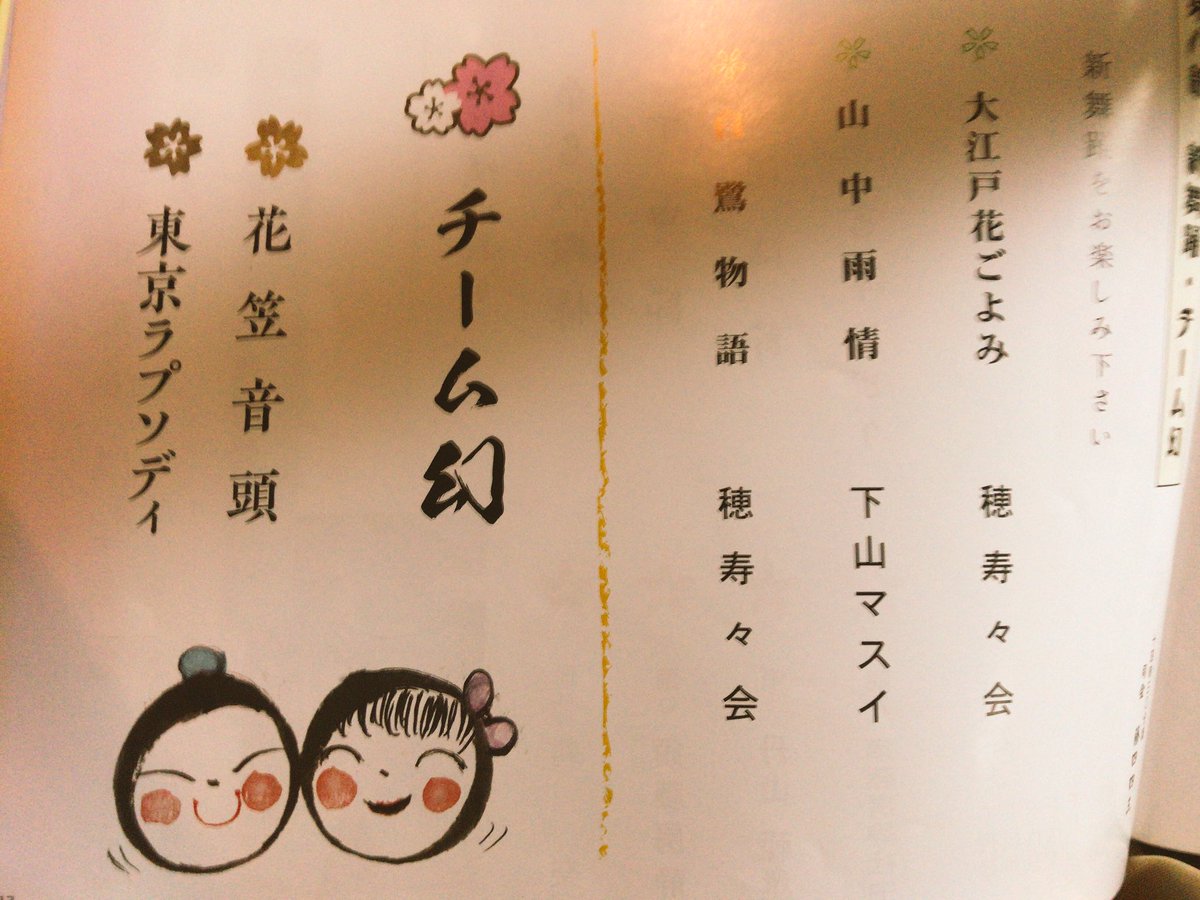 新舞踊・チーム幻
新舞踊をお楽しみ下さい
大江戸花ごよみ 穂寿々会
山中雨情 下山マスイ
鷺物語 穂寿々会
チーム幻
花笠音頭
東京ラプソディ